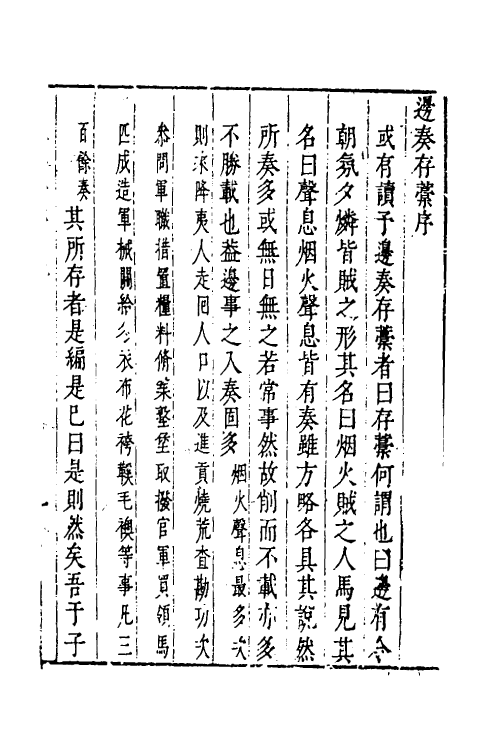 邊奏存藁序
或有讀予邊奏存藁者曰存藁何謂也曰邊有令
朝氛夕燐皆賊之形其名曰烟火賊之人馬見其
名曰聲息烟火聲息皆有奏雖方略各具其說然
所奏多或無日無之若常事然故削而不載亦多
不勝載也葢邊事之入奏固多烟火聲息最多次
則來降夷人走回人口以及進貢燒荒查勘功次
叅問軍職措置糧料脩築墪堡取撥官軍買領馬
匹成造軍械關給冬衣布花袴鞵毛襖等事凡三
百餘奏其所存者是編是已曰是則然矣吾于子